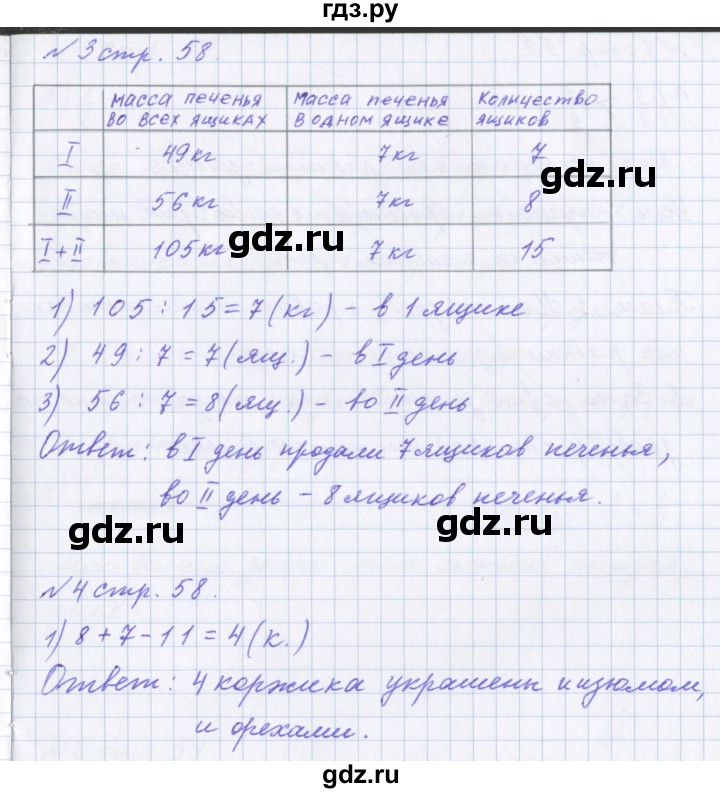 гдз.ру
№3 стр. 58.
масса печенья во всех ящиках масса печенья в одном ящике количество ящиков
I 49 кг 7 кг 7
gdz.ru
II 56 кг 7 кг 8
gdz.ru
I+II 105 кг 7 кг 15
1) 105 : 15 = 7 (кг) - в 1 ящике
2) 49 : 7 = 7 (ящ.) - в I день
3) 56 : 7 = 8 (ящ.) - во II день
Ответ: в I день продали 7 ящиков печенья,
во II день - 8 ящиков печенья.
gdz.ru gdz.ru
№4 стр. 58.
1) 8 + 7 - 11 = 4 (к.)
Ответ: 4 коржика украшены и изюмом,
и орехами.
gdz.ru